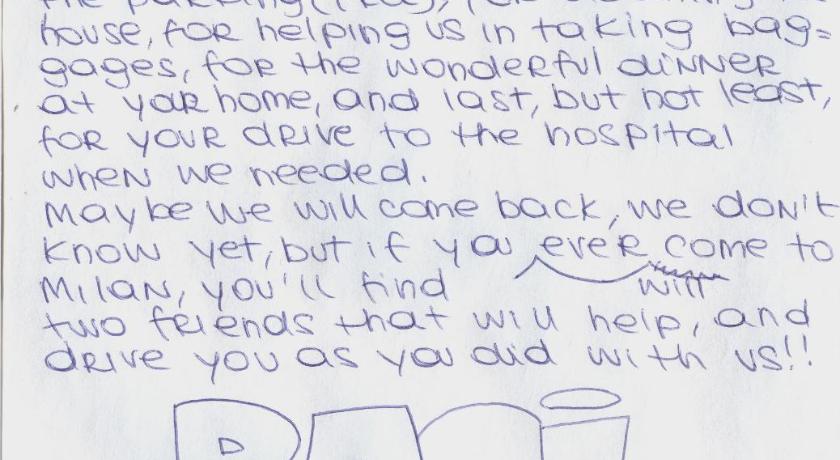 the parking (free), for
house, for helping us in taking bag=
gages, for the wonderful dinner
at your home, and last, but not least,
for your drive to the hospital
when we needed.
Maybe we will come back, we don't
know yet, but if you ever come to
Milan, you'll find will
two friends that will help, and
drive you as you did with us!!